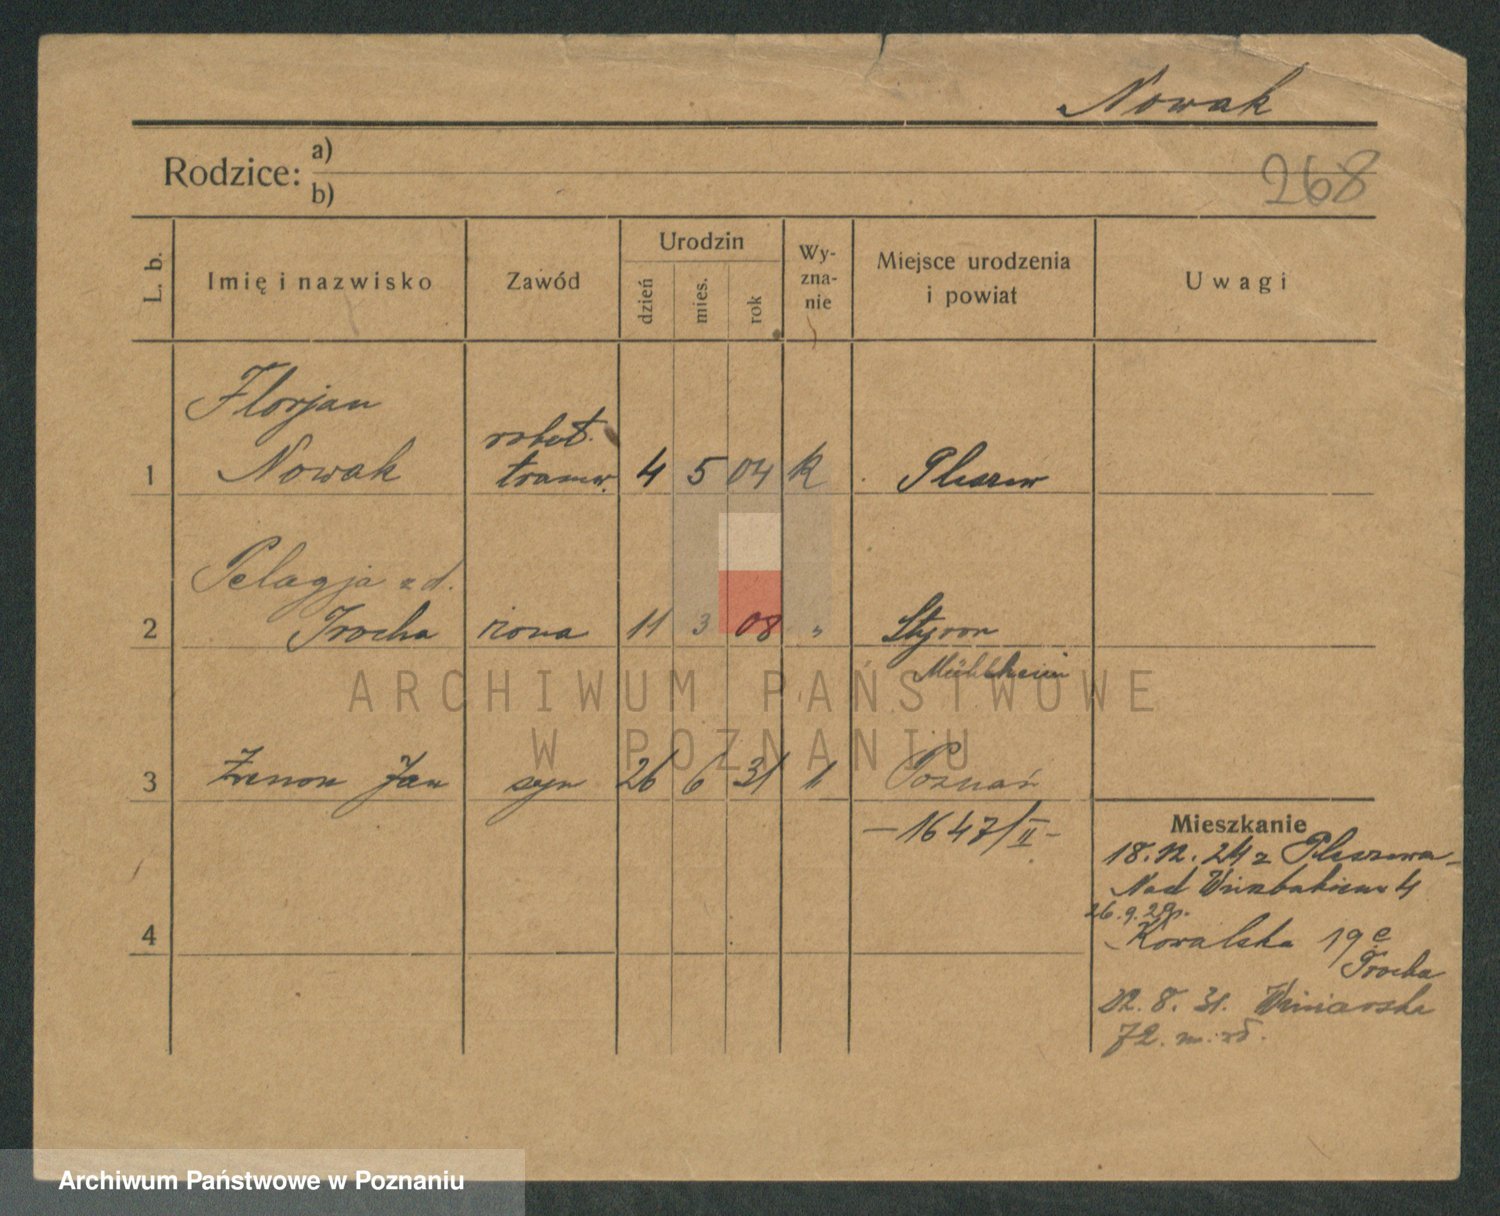 Nowak
Rodzice: a)
b)
268
L. b.
Imię i nazwisko
Zawód
Urodzin
dzień
mies.
rok
Wy-
zna-
nie
Miejsce urodzenia
i powiat
Uwagi
Florjan
Nowak
robot.
tramw.
1
4 5 04 k
Pleszew
Pelagja z d.
Trocha
2
żona
11 3 08 "
Styrom
Mühlheim
ARCHIWUM PAŃSTWOWE
W POZNANIU
3
Zenon Jan
syn
26 6 31 "
Poznań
- 1647/II -
4
Mieszkanie
18.12.24 z Pleszewa
Nad Wierzbakiem 4
26.9.29
Kowalska 19
Trocha
02.8.31. Winiarska
72. m.
Archiwum Państwowe w Poznaniu